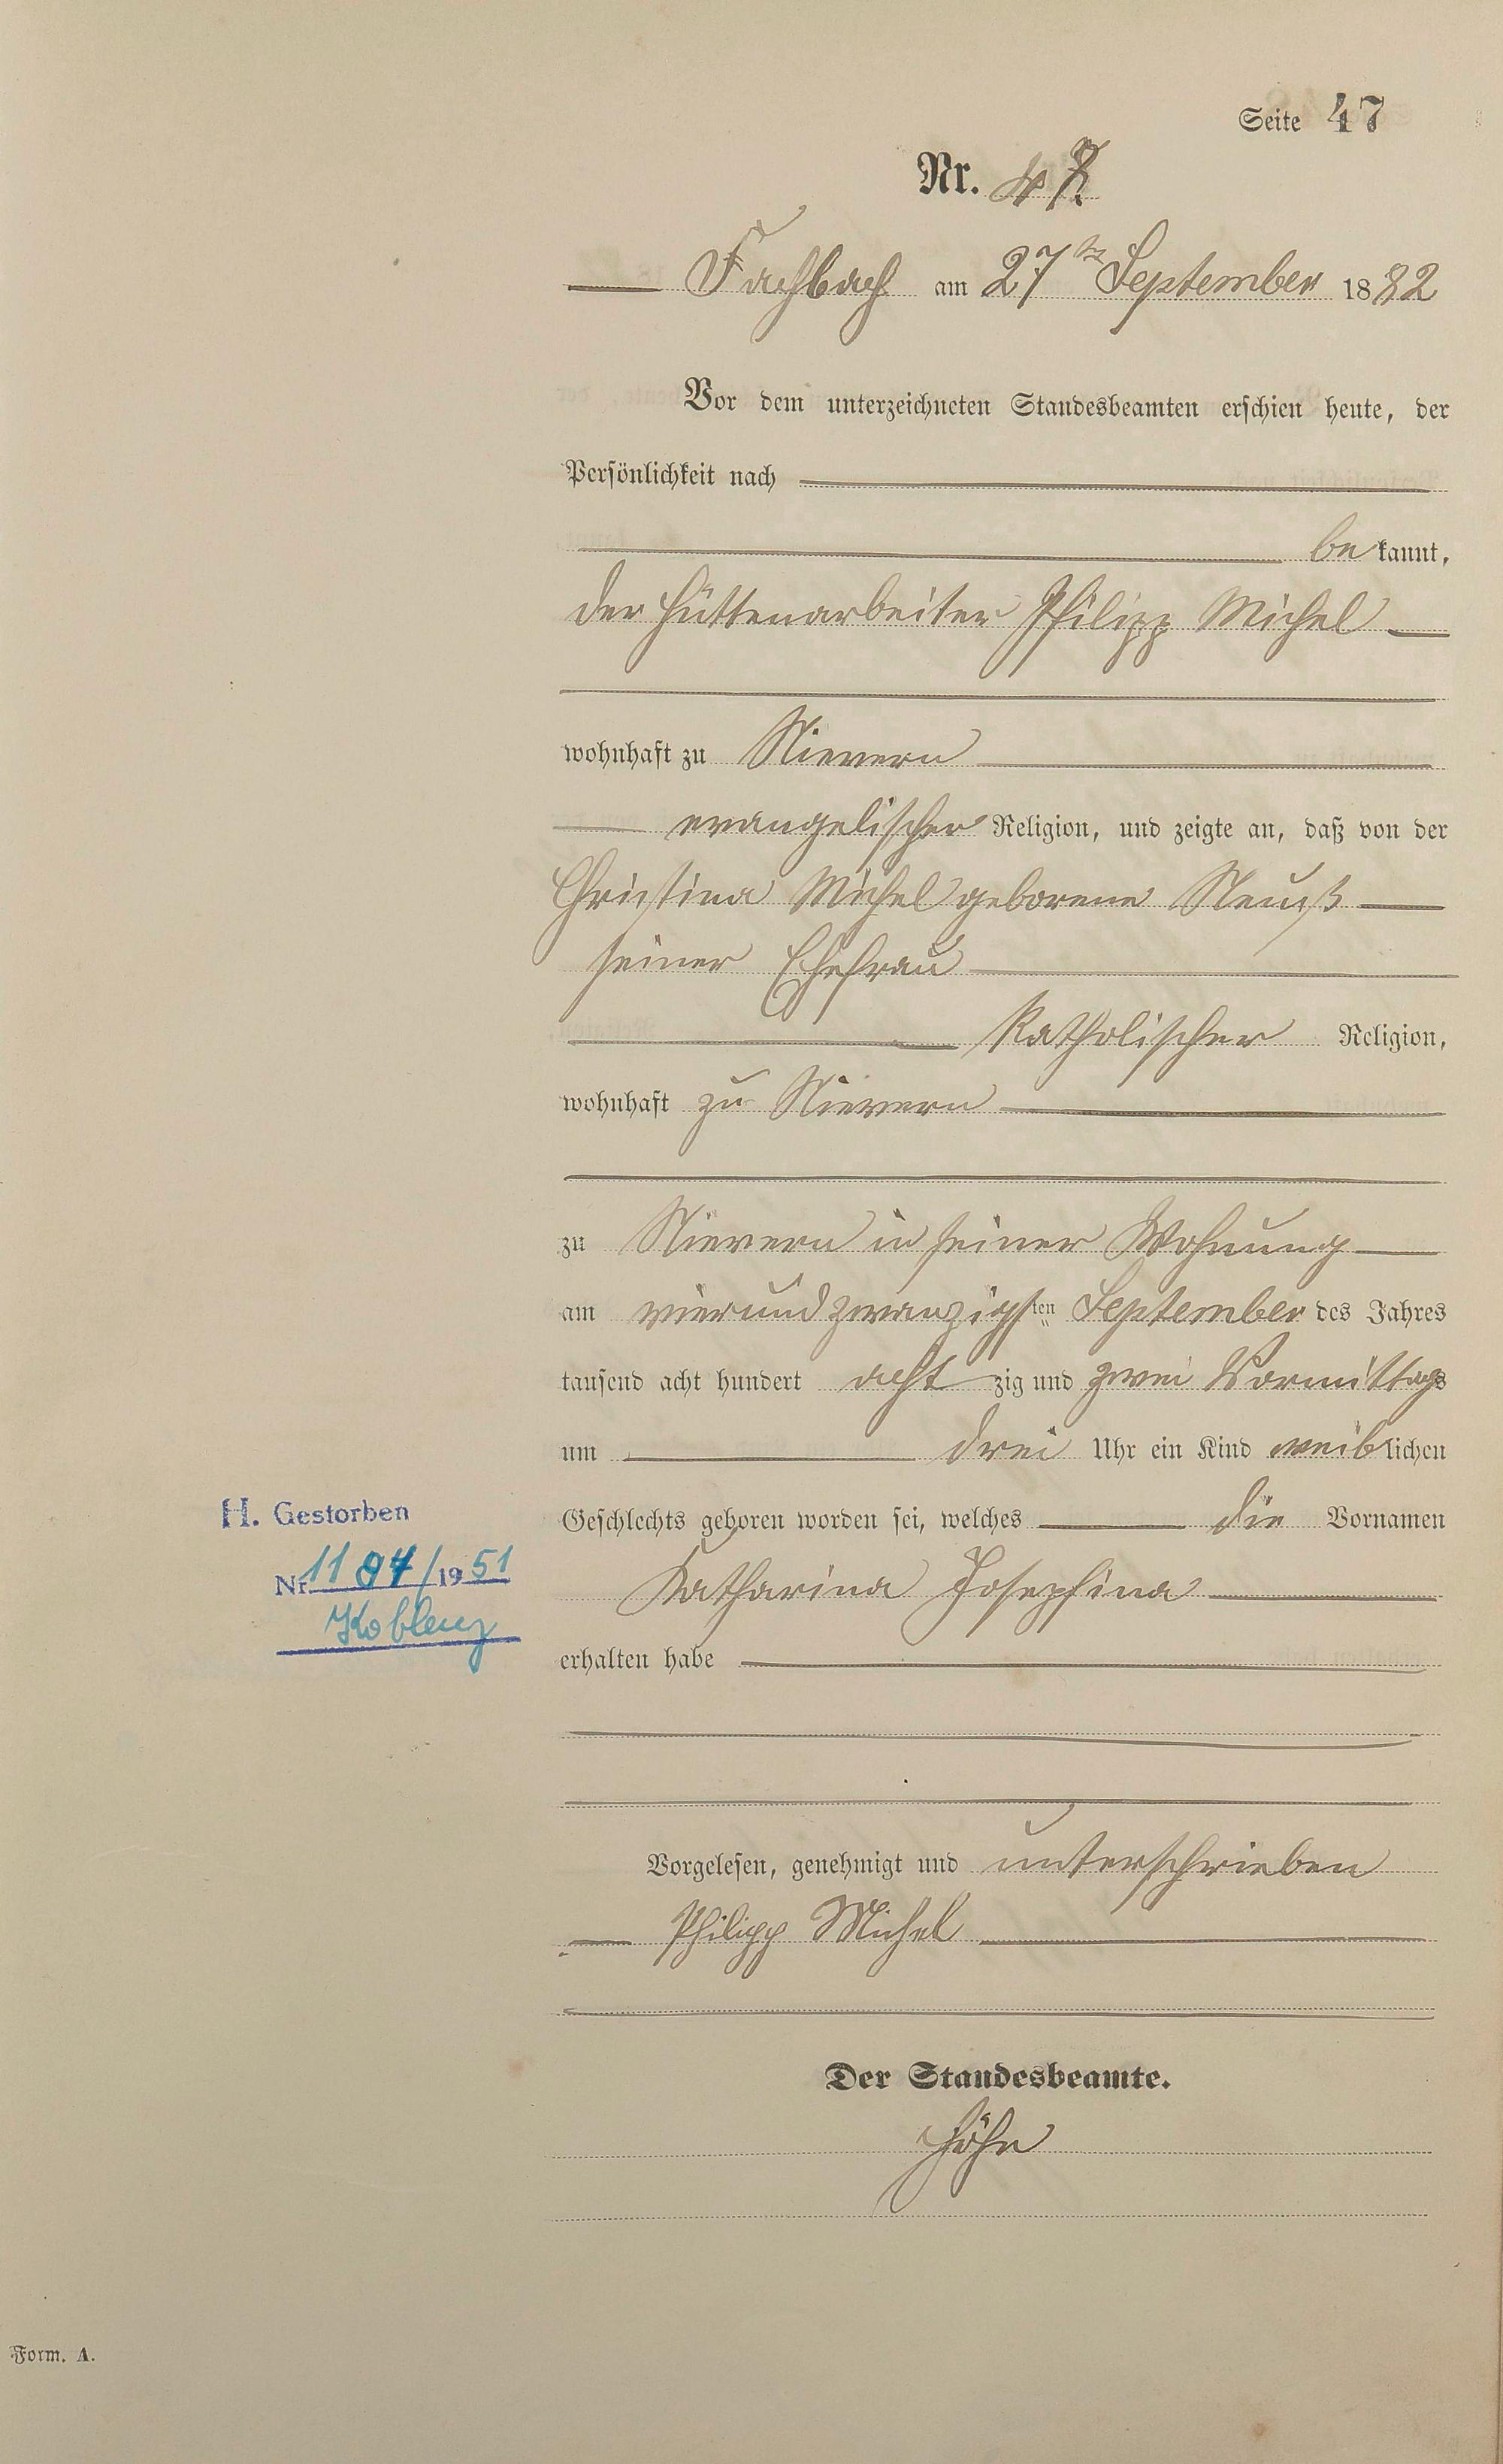 Seite 47
Nr. 47.
Fachbach am 27ten September 1882
Vor dem unterzeichneten Standesbeamten erschien heute, der
Persönlichkeit nach
bekannt,
der Hüttenarbeiter Philipp Michel
wohnhaft zu Nievern
evangelischer Religion, und zeigte an, daß von der
Christina Michel geborene Neuß
seiner Ehefrau
katholischer Religion,
wohnhaft zu Nievern
zu Nievern in seiner Wohnung
am vierundzwanzigsten September des Jahres
tausend acht hundert achtzig und zwei Vormittags
um drei Uhr ein Kind weiblichen
Geschlechts geboren worden sei, welches die Vornamen
Katharina Josephina
erhalten habe
H. Gestorben
Nr. 1194/1951
Koblenz
Vorgelesen, genehmigt und unterschrieben
Philipp Michel
Der Standesbeamte.
Höhn
Form. A.